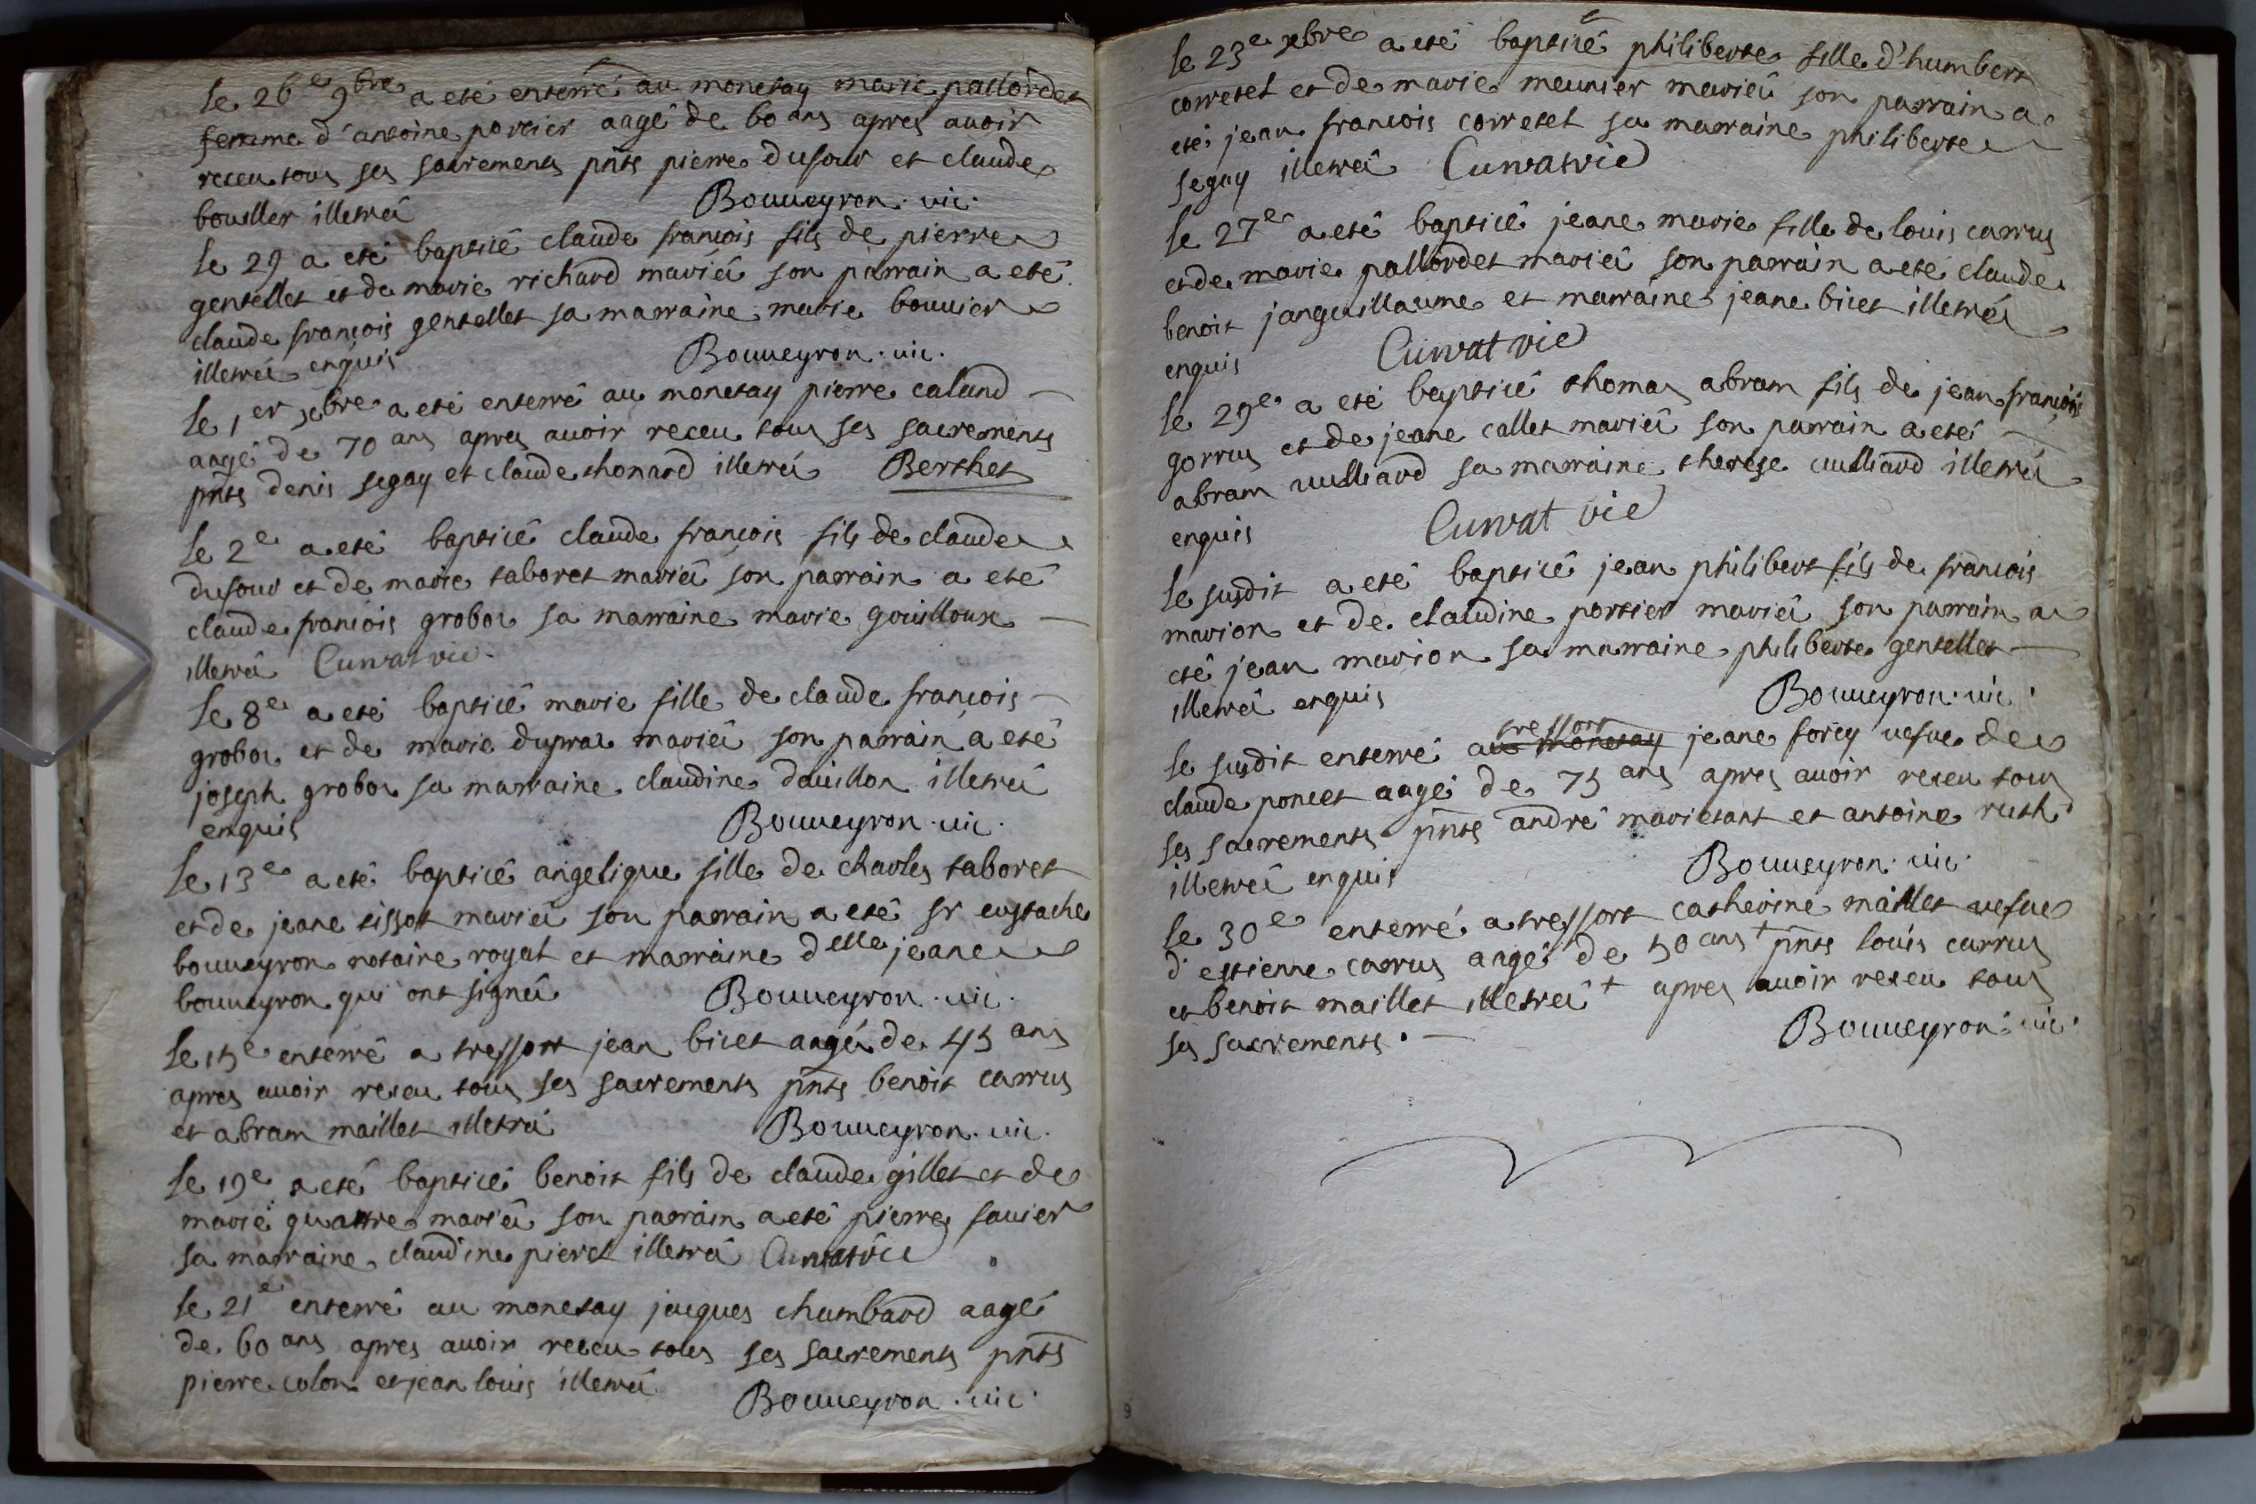 le 26e 9bre a eté enterré au monetay marie pallordet
femme d'antoine portier aagé de 60 ans apres auoir
receu tous ses sacrements pnts pierre dufour et claude
bouiller illetré Bouueyron vic.
le 29 a eté baptisé claude françois fils de pierre
gentellet et de marie richard mariés son parrain a eté
claude françois gentellet sa marraine marie bouuier
illetrés enquis Bouueyron. vic.
le 1er xbre a eté enterré au monetay pierre caland
aagé de 70 ans apres auoir receu tous ses sacrements
pnts denis segay et claude thonard illetrés Berthet
le 2e a eté baptisé claude françois fils de claude
dufour et de marie taboret mariés son parrain a eté
claude françois groboz sa marraine marie gouilloux
illetrés Curvat vic.
le 8e a eté baptisé marie fille de claude françois
groboz et de marie dupraz mariés son parrain a eté
joseph groboz sa marraine claudine dauillon illetrés
enquis Bouueyron. vic.
le 13e a eté baptisé angelique fille de charles taboret
et de jeane tissot mariés son parrain a eté sr eustache
bouueyron notaire royal et marraine delle jeane
bouueyron qui ont signés Bouueyron. vic.
le 15e enterré a tressort jean bicet aagé de 45 ans
apres auoir receu tous ses sacrements pnts benoit carrus
et abram maillet illetrés Bouueyron. vic.
le 19e a eté baptisé benoit fils de claude gillet et de
marie quattre mariés son parrain a eté pierre fauier
sa marraine claudine pieret illetrés Curvat vic
le 21e enterré au monetay jacques chambard aagé
de 60 ans apres auoir receu tous ses sacrements pnts
pierre colon et jean louis illetrés Bouueyron. vic.
le 23e xbre a eté baptisé philiberte fille d'humbert
corretet et de marie meunier mariés son parrain a
eté jean françois corretet sa marraine philiberte
segay illetrés Curvat vic
le 27e a eté baptisé jeane marie fille de louis carrus
et de marie pallordet mariés son parrain a eté claude
benoit janguillaume et marraine jeane bicet illetrés
enquis Curvat vic
le 29e a eté baptisé thomas abram fils de jean françois
gorrus et de jeane callet mariés son parrain a eté
abram vulliard sa marraine therese vulliard illetrés
enquis Curvat vic
le susdit a eté baptisé jean philibert fils de françois
marion et de claudine portier mariés son parrain a
eté jean marion sa marraine philiberte gentellet
illetrés enquis Bouueyron. vic.
le susdit enterré a tressort au monetay jeane forey vefue de
claude poncet aagé de 75 ans apres auoir receu tous
ses sacrements pnts andré marietant et antoine ruth
illetrés enquis Bouueyron. vic.
le 30e enterré a tressort catherine maillet vefue
d'estienne carrus aagé de 50 ans + pnts louis carrus
et benoit maillet illetrés + apres auoir receu tous
ses sacrements. Bouueyron. vic.